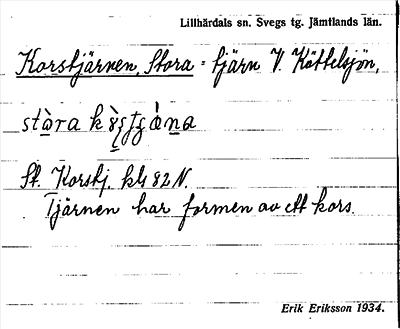 Lillhärdals sn. Svegs tg. Jämtlands län.
Korstjärnen, Stora = tjärn V. Kättelsjön,
St. Korstj. kbl 82 N.
Tjärnen har formen av ett kors.
Erik Eriksson 1934.